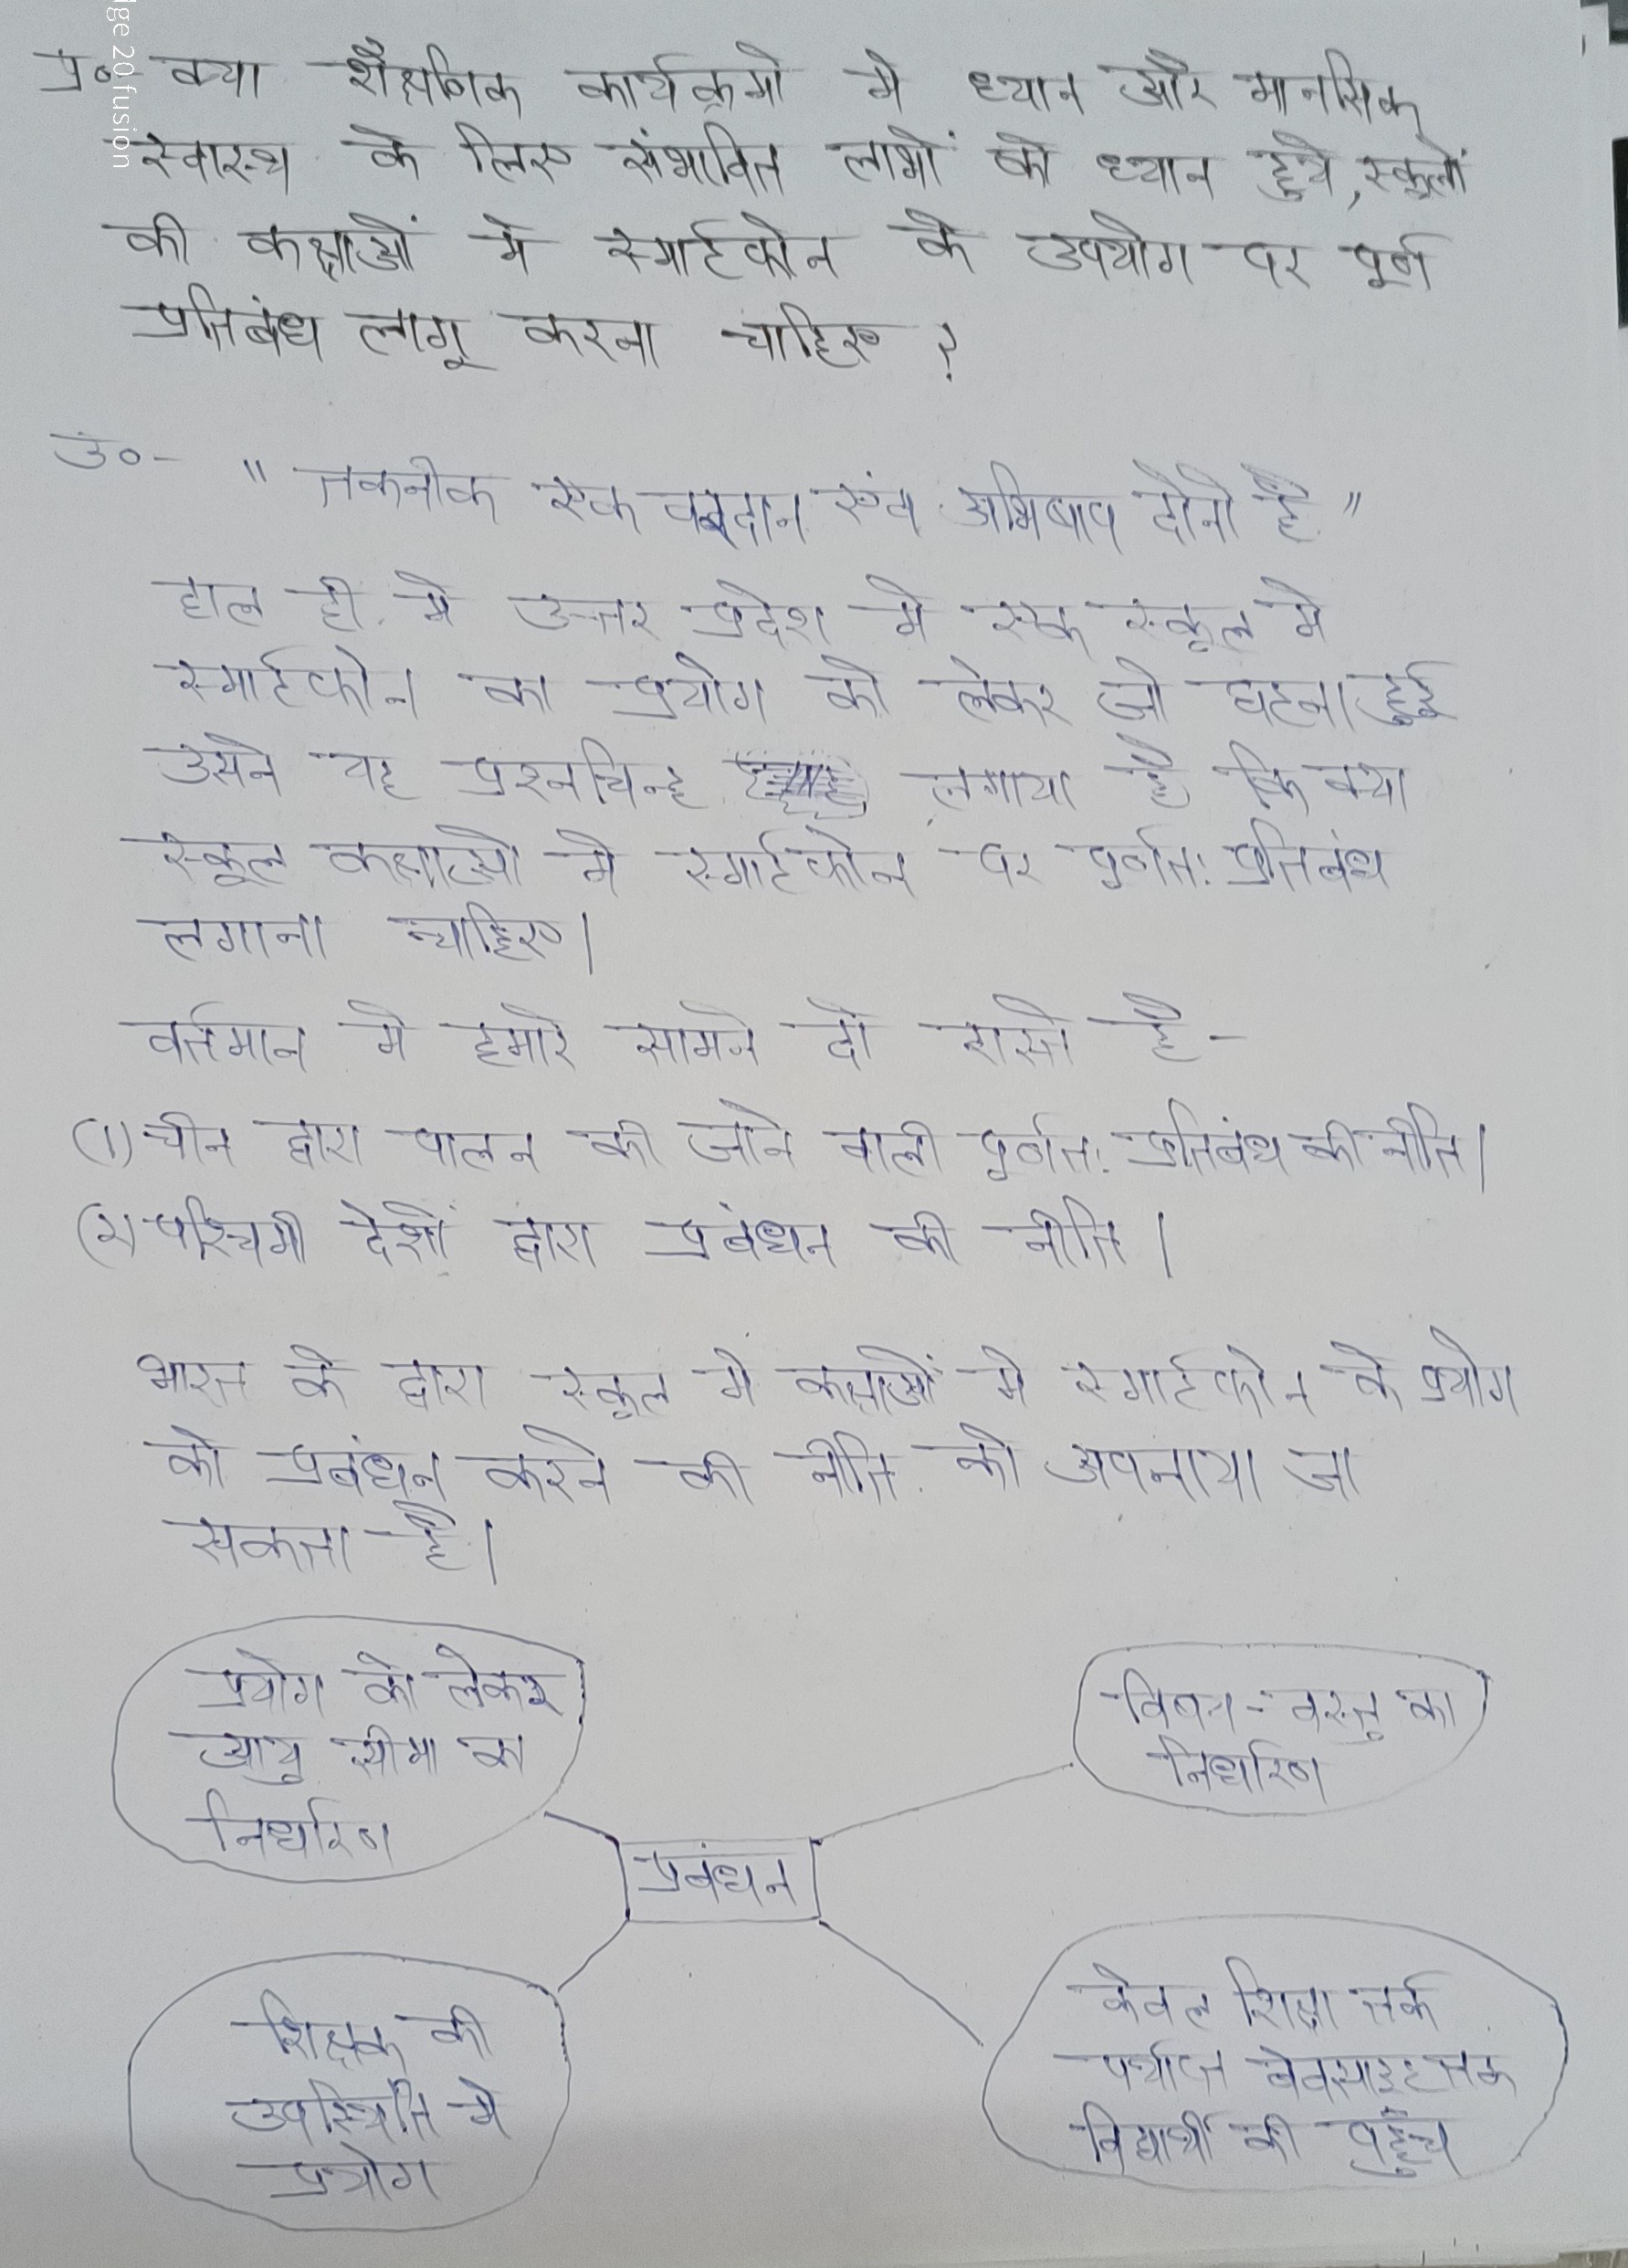 प्र०- क्या शैक्षणिक कार्यक्रमो मे ध्यान और मानसिक
स्वास्थ्य के लिए संभावित लाभों को ध्यान हुये, स्कूलों
की कक्षाओं मे स्मार्टफोन के उपयोग पर पूर्ण
प्रतिबंध लागू करना चाहिए ?
उ०- " तकनीक एक वरदान एंव अभिषाप दोनो है "
हाल ही मे उत्तर प्रदेश मे एक स्कूल मे
स्मार्टफोन का प्रयोग को लेकर जो घटना हुई
उसने यह प्रश्नचिन्ह लगाया है कि क्या
स्कूल कक्षाओ मे स्मार्टफोन पर पूर्णत: प्रतिबंध
लगाना चाहिए।
वर्तमान मे हमारे सामने दो रास्ते है-
(1) चीन द्वारा पालन की जाने वाली पूर्णत: प्रतिबंध की नीति।
(२) पश्चिमी देशों द्वारा प्रबंधन की नीति।
भारत के द्वारा स्कूल मे कक्षाओं मे स्मार्टफोन के प्रयोग
को प्रबंधन करने की नीति को अपनाया जा
सकता है।
प्रयोग को लेकर
आयु सीमा का
निर्धारण
विषय-वस्तु का
निर्धारण
प्रबंधन
शिक्षक की
उपस्थिति मे
प्रयोग
केवल शिक्षा तर्क
पर्याप्त वेबसाइट तक
विद्यार्थी की पहुँच
dge 20 fusion